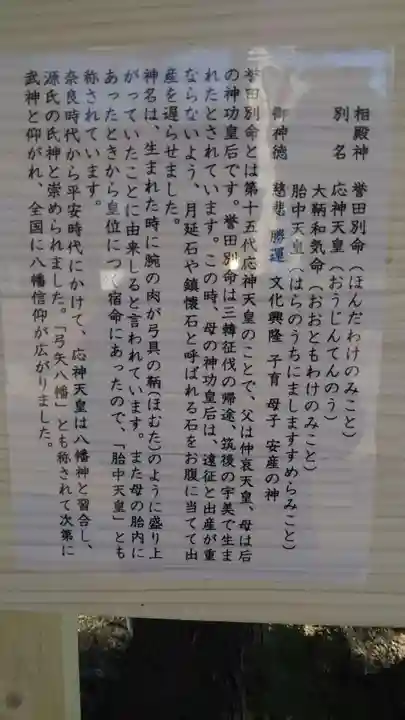 相殿神　誉田別命（ほんだわけのみこと）
別　名　応神天皇（おうじんてんのう）
大鞆和気命（おおともわけのみこと）
胎中天皇（はらのうちにましますすめらみこと）
御神徳　慈悲　勝運　文化興隆　子育　母子　安産の神
誉田別命とは第十五代応神天皇のことで、父は仲哀天皇、母は后
の神功皇后です。誉田別命は三韓征伐の帰途、筑後の宇美で生ま
れたとされています。この時、母の神功皇后は、遠征と出産が重
ならないよう、月延石や鎮懐石と呼ばれる石をお腹に当てて出
産を遅らせました。
神名は、生まれた時に腕の肉が弓具の鞆（ほむた）のように盛り上
がっていたことに由来しると言われています。また母の胎内に
あったときから皇位につく宿命にあったので、「胎中天皇」とも
称されています。
奈良時代から平安時代にかけて、応神天皇は八幡神と習合し、
源氏の氏神と崇められました。「弓矢八幡」とも称されて次第に
武神と仰がれ、全国に八幡信仰が広がりました。